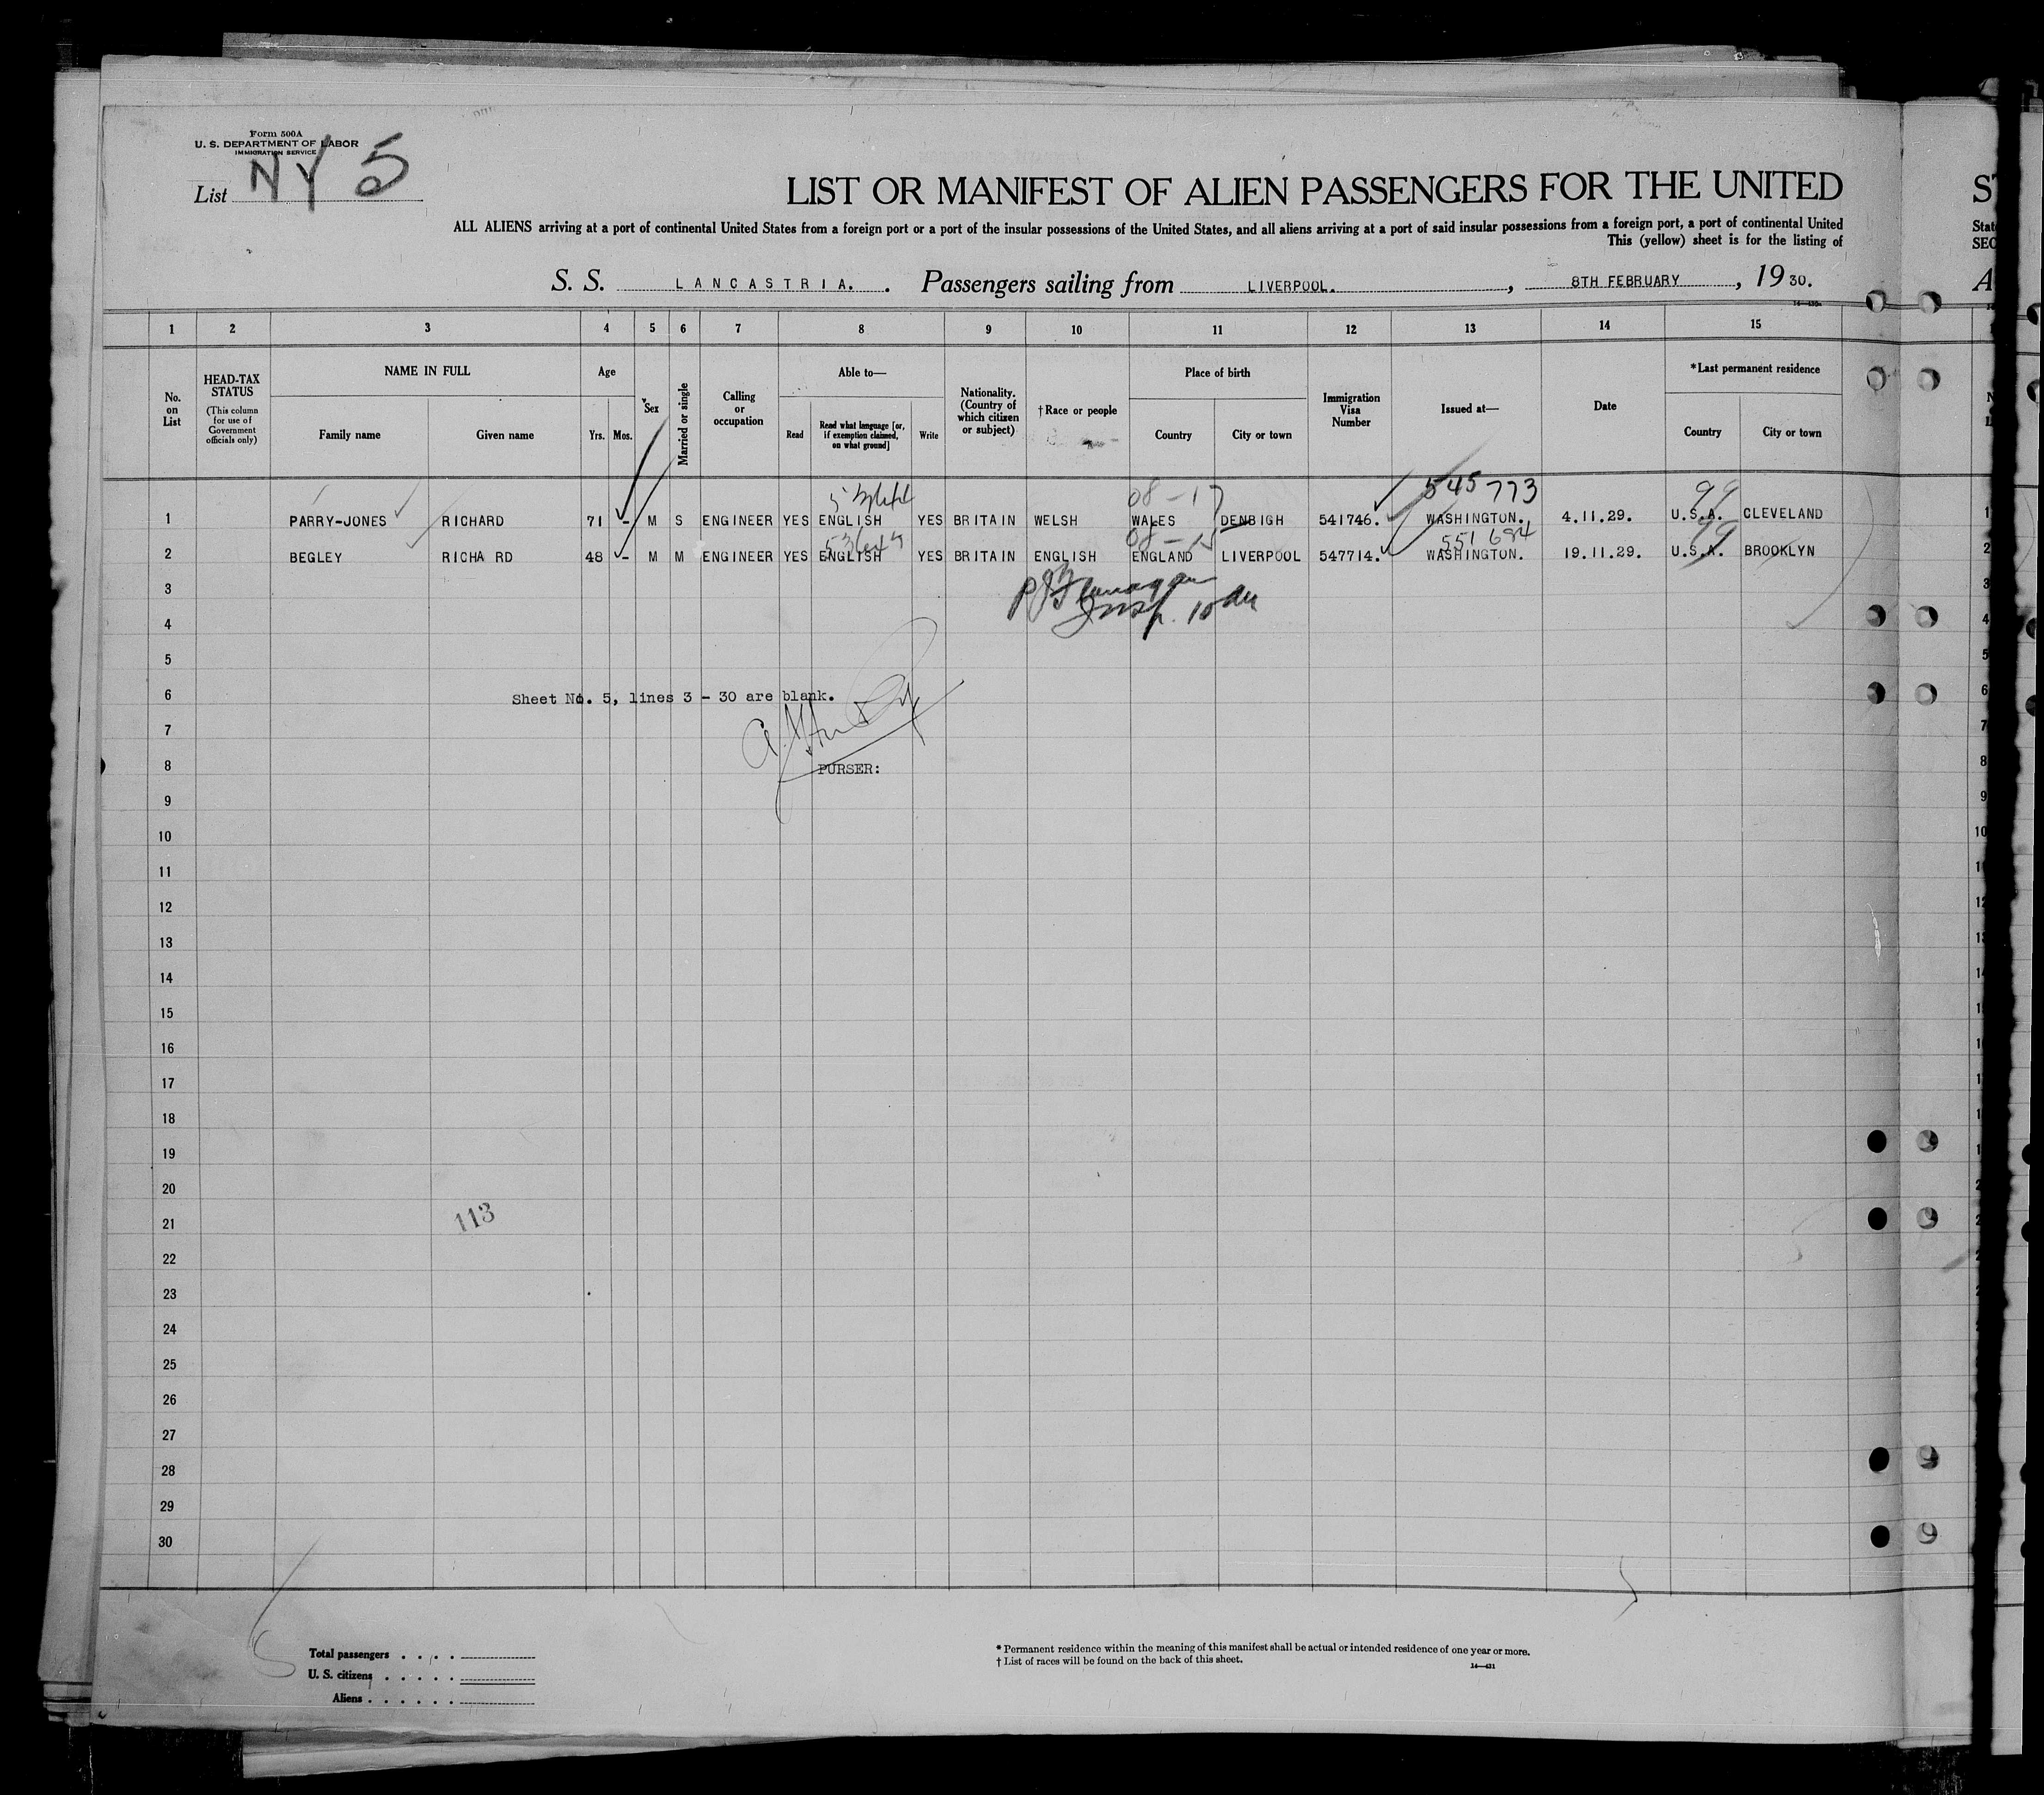 Form 500A
U. S. DEPARTMENT OF LABOR
IMMIGRATION SERVICE
List NY 5
LIST OR MANIFEST OF ALIEN PASSENGERS FOR THE UNITED
ALL ALIENS arriving at a port of continental United States from a foreign port or a port of the insular possessions of the United States, and all aliens arriving at a port of said insular possessions from a foreign port, a port of continental United
This (yellow) sheet is for the listing of
S. S. LANCASTRIA. . Passengers sailing from LIVERPOOL. , 8TH FEBRUARY , 19 30.
1 2 3 4 5 6 7 8 9 10 11 12 13 14 15
No. on List
HEAD-TAX STATUS
(This column for use of Government officials only)
NAME IN FULL
Family name Given name
Age
Yrs. Mos.
Sex
Married or single
Calling or occupation
Able to—
Read
Read what language [or, if exemption claimed, on what ground]
Write
Nationality. (Country of which citizen or subject)
†Race or people
Place of birth
Country City or town
Immigration Visa Number
Issued at—
Date
*Last permanent residence
Country City or town
08-17 545773 99
1 PARRY-JONES RICHARD 71 - M S ENGINEER YES ENGLISH YES BRITAIN WELSH WALES DENBIGH 541746. WASHINGTON. 4.11.29. U.S.A. CLEVELAND 1
08-15 551684 99
2 BEGLEY RICHA RD 48 - M M ENGINEER YES ENGLISH YES BRITAIN ENGLISH ENGLAND LIVERPOOL 547714. WASHINGTON. 19.11.29. U.S.A. BROOKLYN 2
3
4
5
6 Sheet No. 5, lines 3 - 30 are blank.
7
8 PURSER:
9
10
11
12
13
14
15
16
17
18
19
20
21 113
22
23
24
25
26
27
28
29
30
Total passengers . . . .
U. S. citizens . . . . .
Aliens . . . . . .
* Permanent residence within the meaning of this manifest shall be actual or intended residence of one year or more.
† List of races will be found on the back of this sheet.
14—431